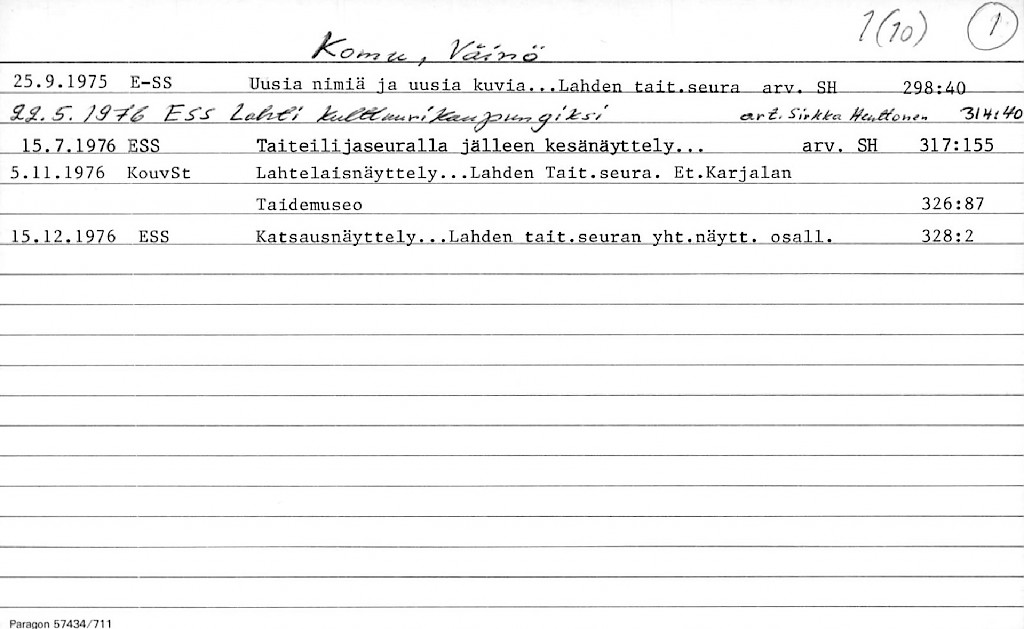 1(10) 1
Komu, Väinö
25.9.1975 E-SS Uusia nimiä ja uusia kuvia...Lahden tait.seura arv. SH 298:40
22.5.1976 ESS Lahti kulttuurikaupungiksi art. Sirkka Henttonen 314:40
15.7.1976 ESS Taiteilijaseuralla jälleen kesänäyttely... arv. SH 317:155
5.11.1976 KouvSt Lahtelaisnäyttely...Lahden Tait.seura. Et.Karjalan
Taidemuseo 326:87
15.12.1976 ESS Katsausnäyttely...Lahden tait.seuran yht.näytt. osall. 328:2
Paragon 57434/711